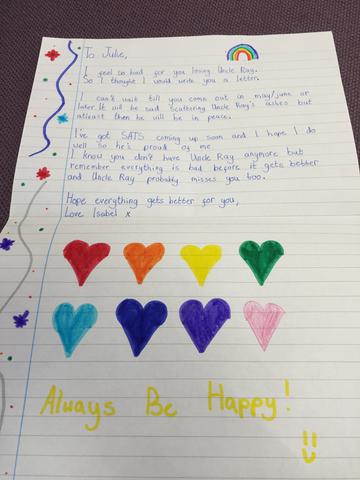 To Julie,
I feel so bad for you losing Uncle Ray.
So I thought I would write you a letter.
I can't wait till you come out in may/june or
later. It will be sad scattering Uncle Ray's ashes but
atleast then he will be in peace.
I've got SATS coming up soon and I hope I do
well so he's proud of me.
I know you don't have Uncle Ray anymore but
remember everything is bad before it gets better
and Uncle Ray probably misses you too.
Hope everything gets better for you,
Love Isabel x
Always Be Happy!